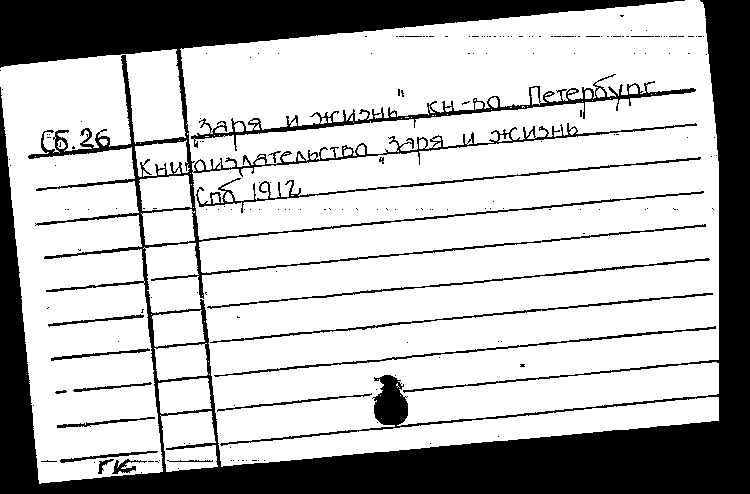 Сб.26 „Заря и жизнь", кн-во. Петербург
Книгоиздательство „Заря и жизнь"
Спб, 1912
ГК